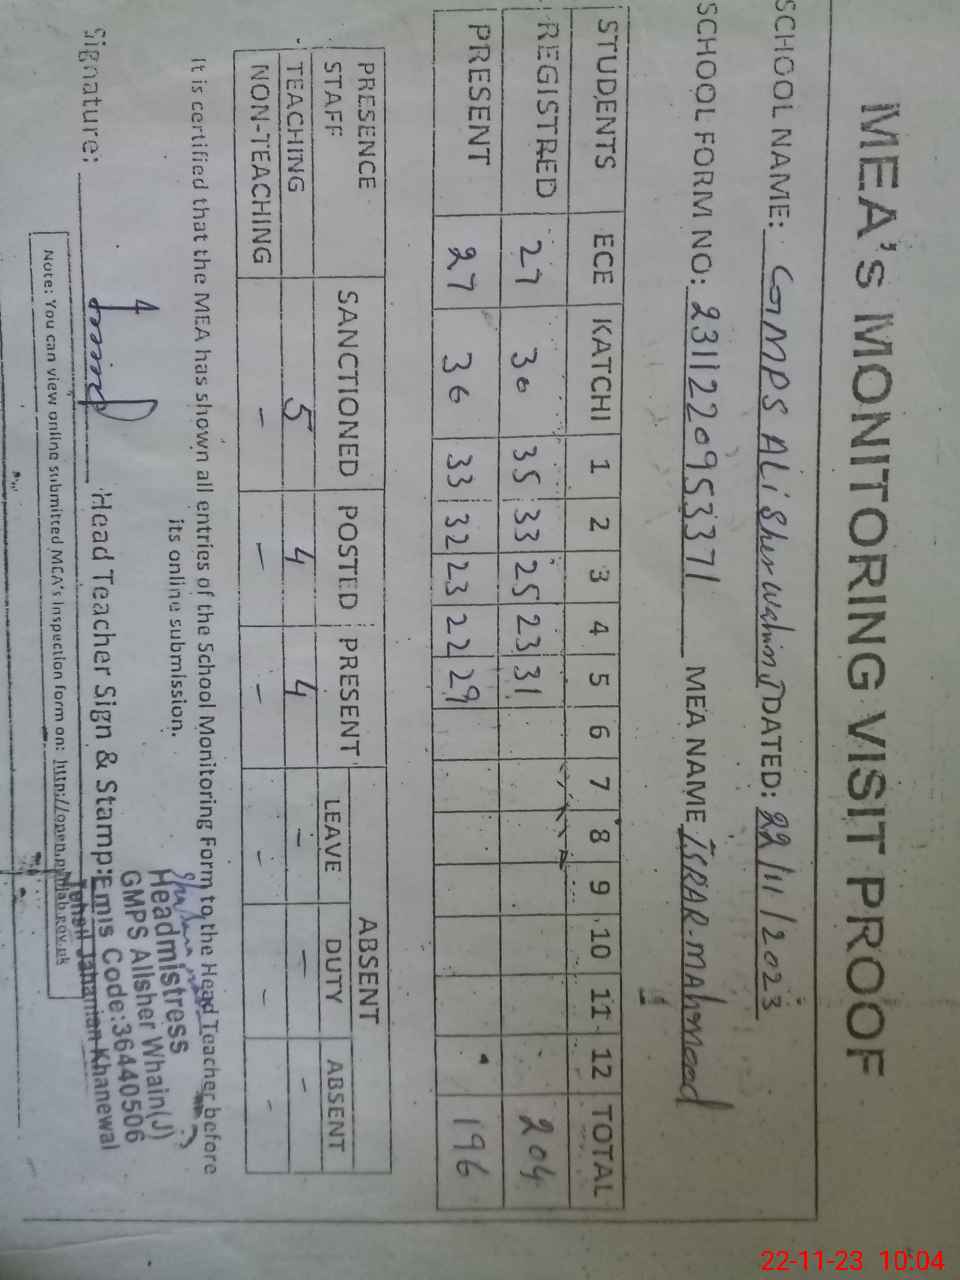 MEA's MONITORING VISIT PROOF
SCHOOL NAME: GMPS ALi Sher wahin J DATED: 22/11/2023
SCHOOL FORM NO: 2311220953371 MEA NAME ISRAR-MAhmood
STUDENTS ECE KATCHI 1 2 3 4 5 6 7 8 9 10 11 12 TOTAL
REGISTRED 27 30 35 33 25 23 31 204
PRESENT 27 30 33 32 23 22 29 196
PRESENCE STAFF SANCTIONED POSTED PRESENT ABSENT
LEAVE DUTY ABSENT
TEACHING 5 4 4 - - -
NON-TEACHING - - - - - -
It is certified that the MEA has shown all entries of the School Monitoring Form to the Head Teacher before
its online submission.
Signature: Head Teacher Sign & Stamp:
Headmistress
GMPS Alisher Whain(J)
Emis Code:36440506
Tehsil Jahanian Khanewal
Note: You can view online submitted MEA's Inspection form on: http://open.punjab.gov.pk
22-11-23 10:04